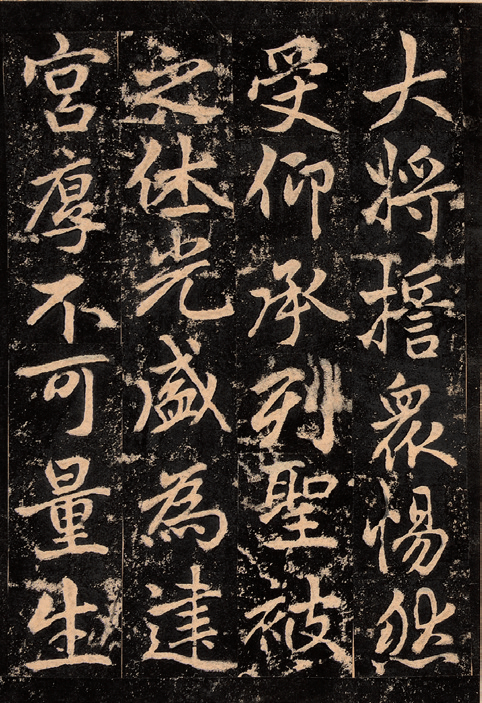 大將誓衆惕然
受仰承列聖被
之休光盛為建
宮厚不可量生